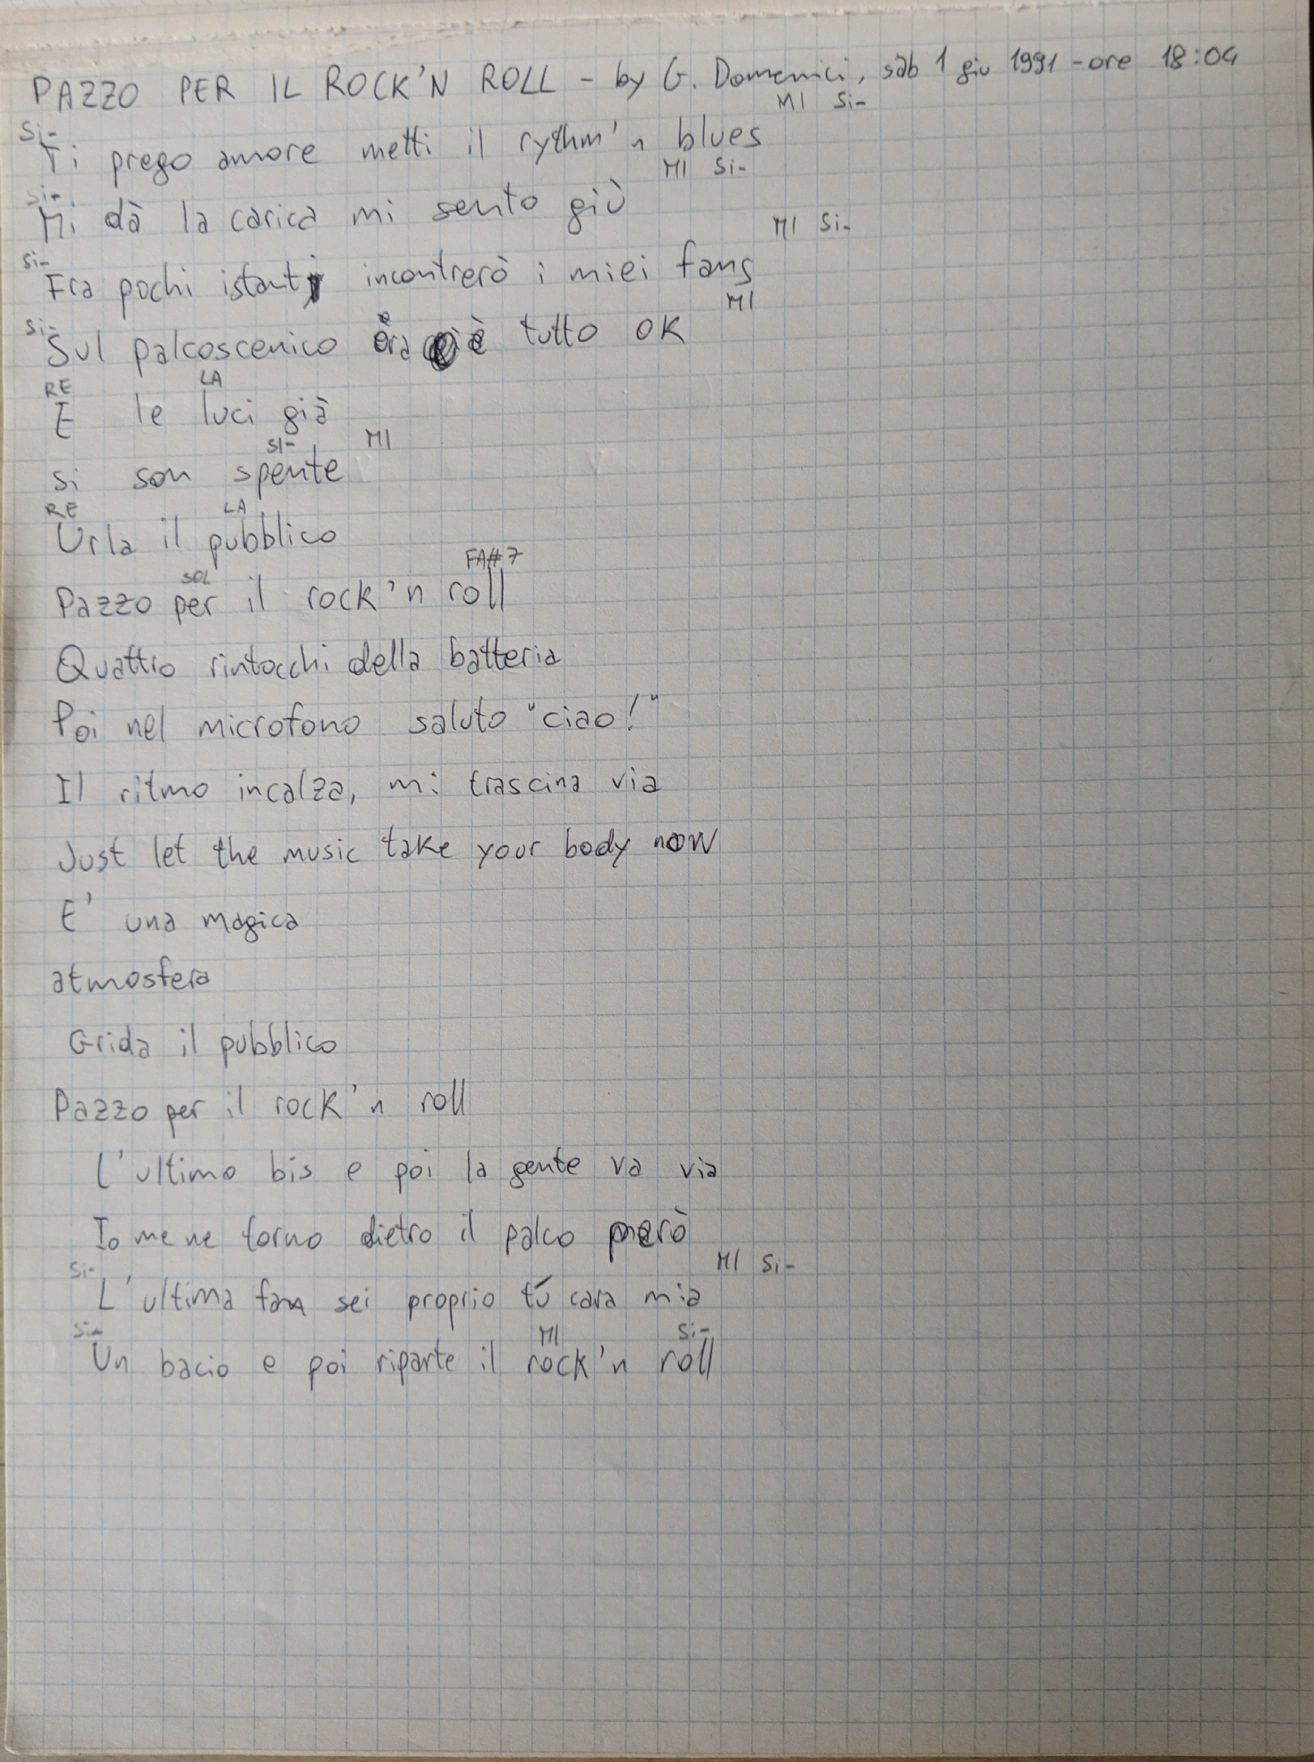 PAZZO PER IL ROCK'N ROLL - by G. Domenici, sab 1 giu 1991 - ore 18:04
MI Si-
Si-
Ti prego amore metti il rythm'n blues
MI Si-
Si-
Mi dà la carica mi sento giù
MI Si-
Si-
Fra pochi istanti incontrerò i miei fans
MI
Si-
Sul palcoscenico ora è tutto OK
RE LA
E le luci già
SI- MI
si son spente
RE LA
Urla il pubblico
SOL FA#7
Pazzo per il rock'n roll
Quattro rintocchi della batteria
Poi nel microfono saluto "ciao!"
Il ritmo incalza, mi trascina via
Just let the music take your body now
E' una magica
atmosfera
Grida il pubblico
Pazzo per il rock'n roll
L'ultimo bis e poi la gente va via
Io me ne torno dietro il palco però
MI Si-
Si-
L'ultima fan sei proprio tu cara mia
Si- MI Si-
Un bacio e poi riparte il rock'n roll